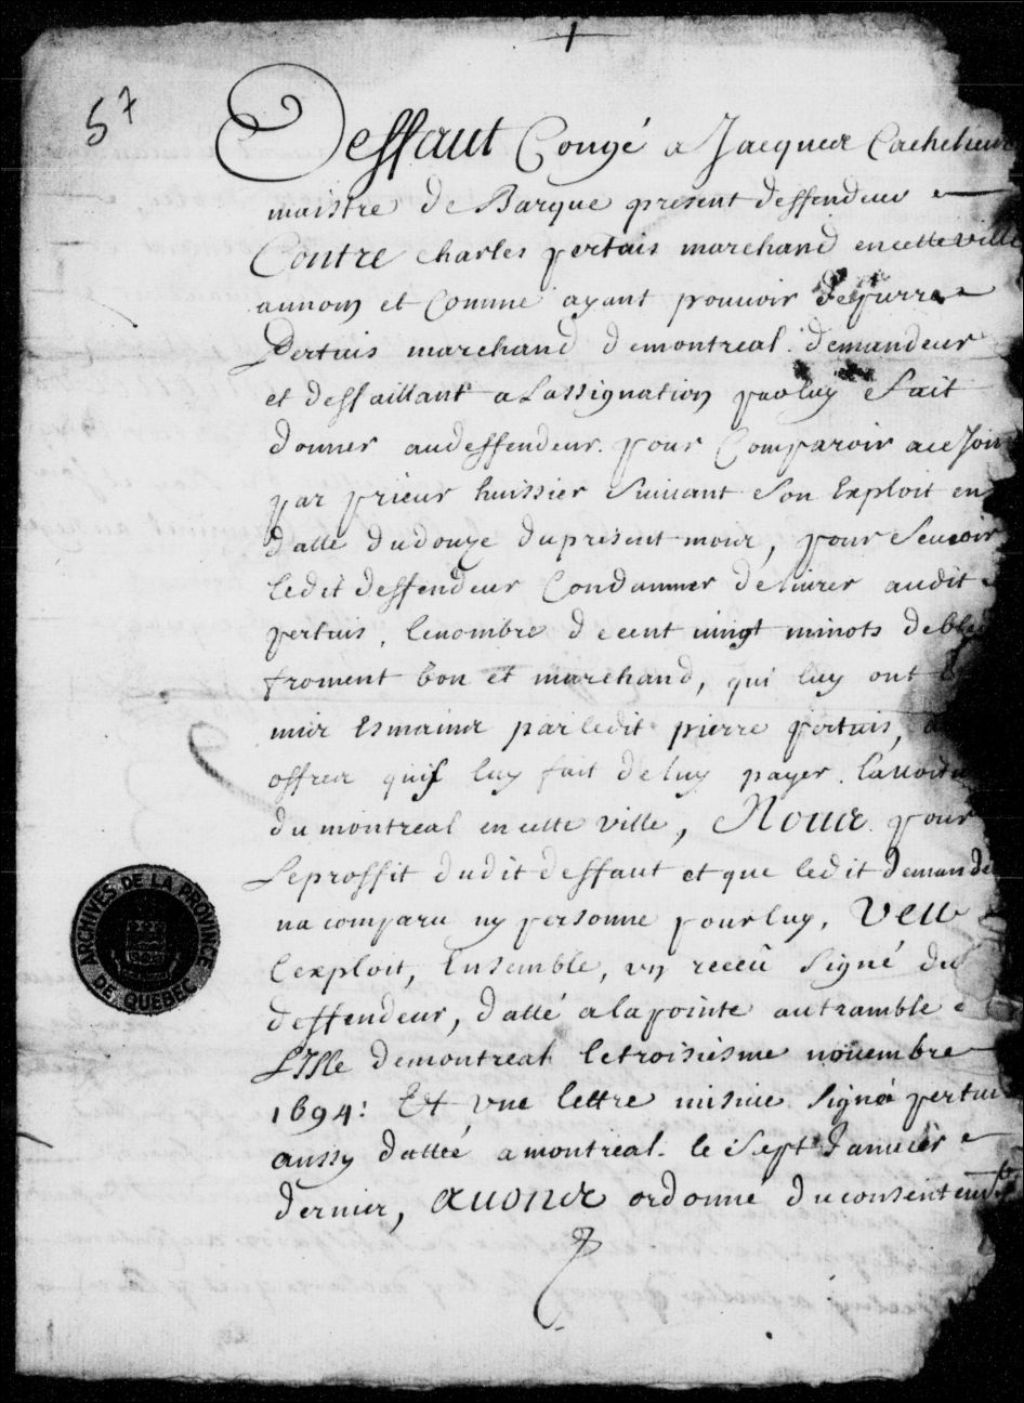 57
Deffaut Congé a Jacques Cachelieure
maistre de Barque present deffendeur
Contre charles pertuis marchand en cette ville
au nom et Comme ayant pouuoir de pierre
Pertuis marchand de montreal demandeur
et deffaillant a Lassignation par luy fait
donner au deffendeur pour Comparoir a ce Jour
par prieur huissier Suiuant Son Exploit en
datte du douze du present mois, pour Se veoir
ledit deffendeur Condamner deliurer audit
pertuis, le nombre de cent vingt minots de bled
froment bon et marchand, qui luy ont
mis Es mains par ledit pierre pertuis,
offres quil luy fait de luy payer la voiture
du montreal en cette ville, Nous pour
Le proffit dudit deffaut et que ledit demandeur
na comparu ny personne pour luy, Veu
lexploit, Ensemble, vn receü Signé du
deffendeur, datté a la pointe au tramble
LIsle de montreal le troisiesme nouembre
1694: Et vne lettre missiue Signée pertuis
aussy dattée a montreal le Sept Januier
dernier, auons ordonné du consentemt
ARCHIVES DE LA PROVINCE DE QUEBEC